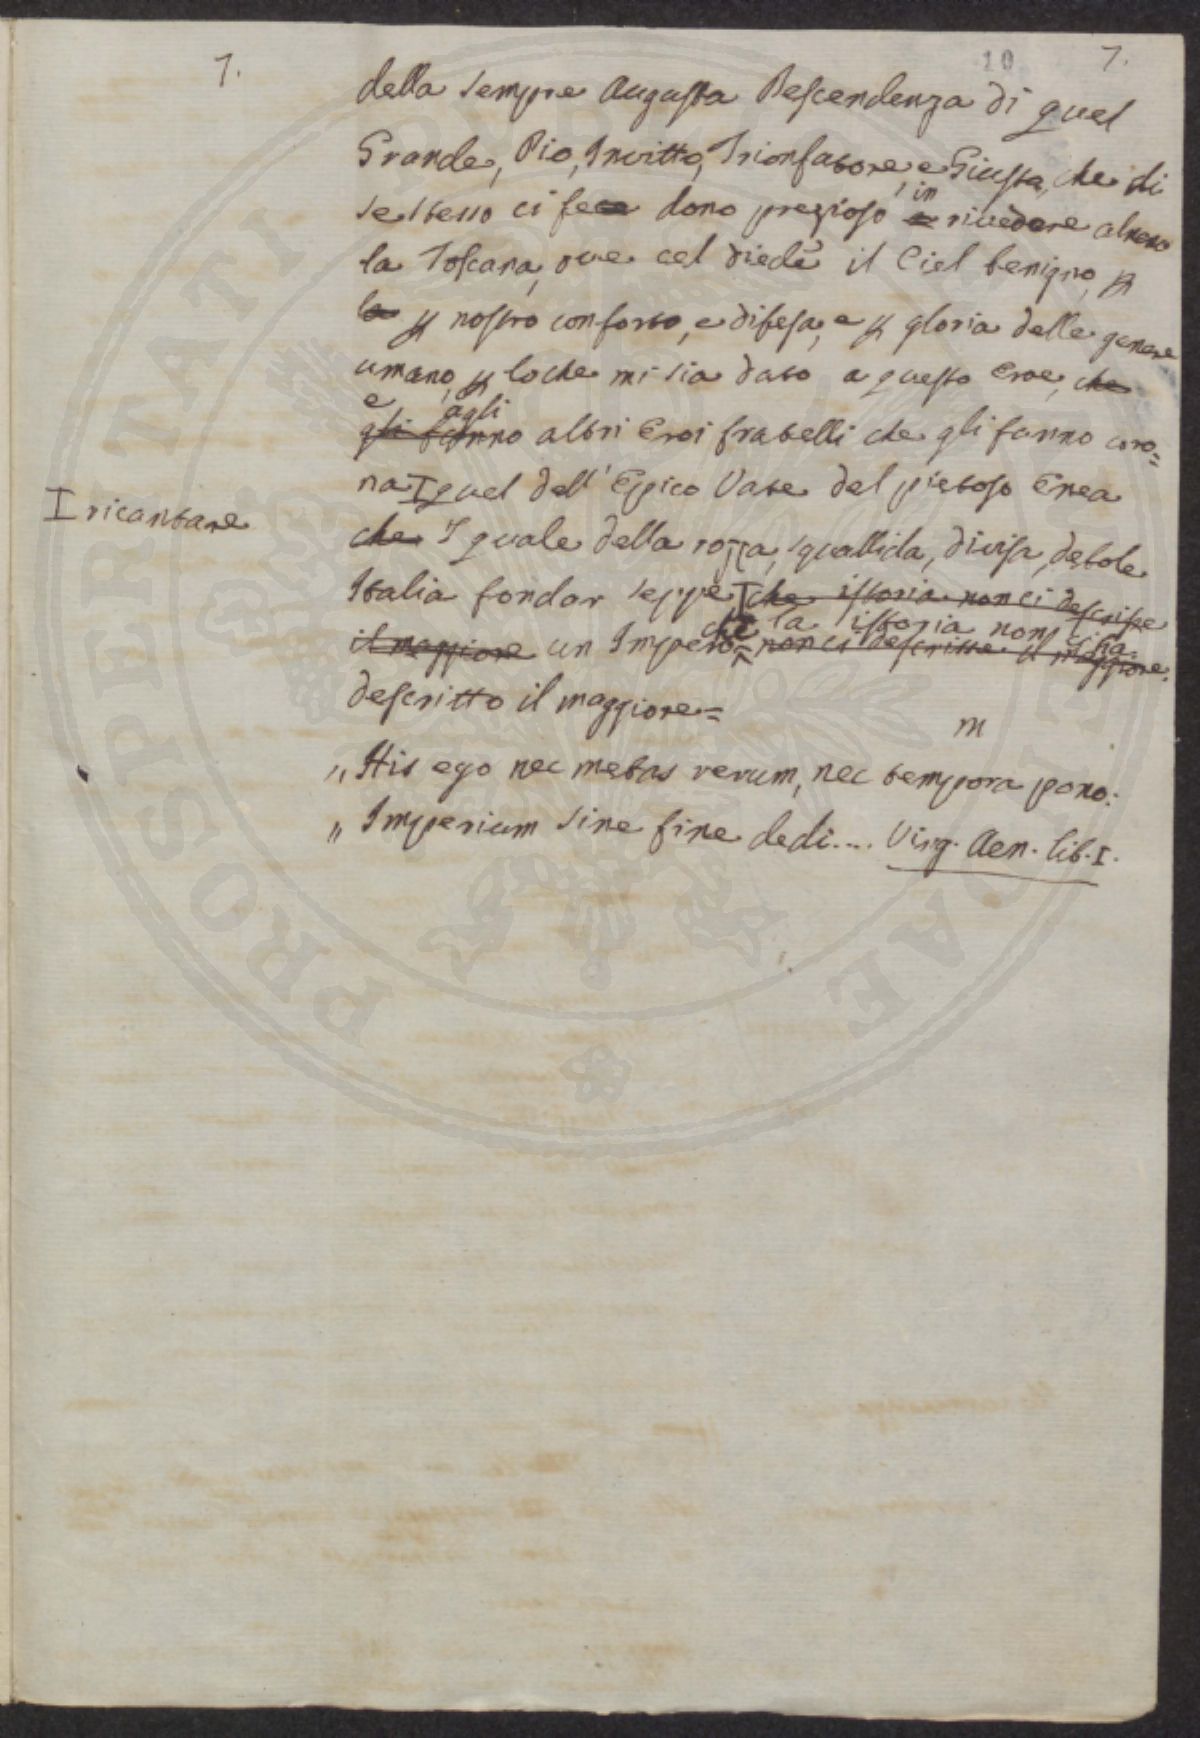 7.
10
7.
della sempre Augusta Descendenza di quel
Grande, Pio, Invitto, Trionfatore e Giusto, che di
se stesso ci fece dono prezioso, in rivedere almeno
la Toscana, ove cel diede il Ciel benigno, p
la p nostro conforto, e difesa, e p gloria delle genere
umano, p loche mi sia dato a questo Eroe, che
e agli
gli fanno altri Eroi fratelli che gli fanno coro=
na I quel dell' Eppico Vate del pietoso Enea
I ricantare
che I quale della rozza, squallida, divisa, debole
Italia fondar seppe I che istoria non ci descrisse
che la istoria non ci sia
il maggiore un Impero= non ci descrisse il maggiore.
descritto il maggiore=
m
„ His ego nec metas rerum, nec tempora pono:
„ Imperium sine fine dedi.... Virg. Aen. lib. I.
PROSPERITATI PUBLICAE